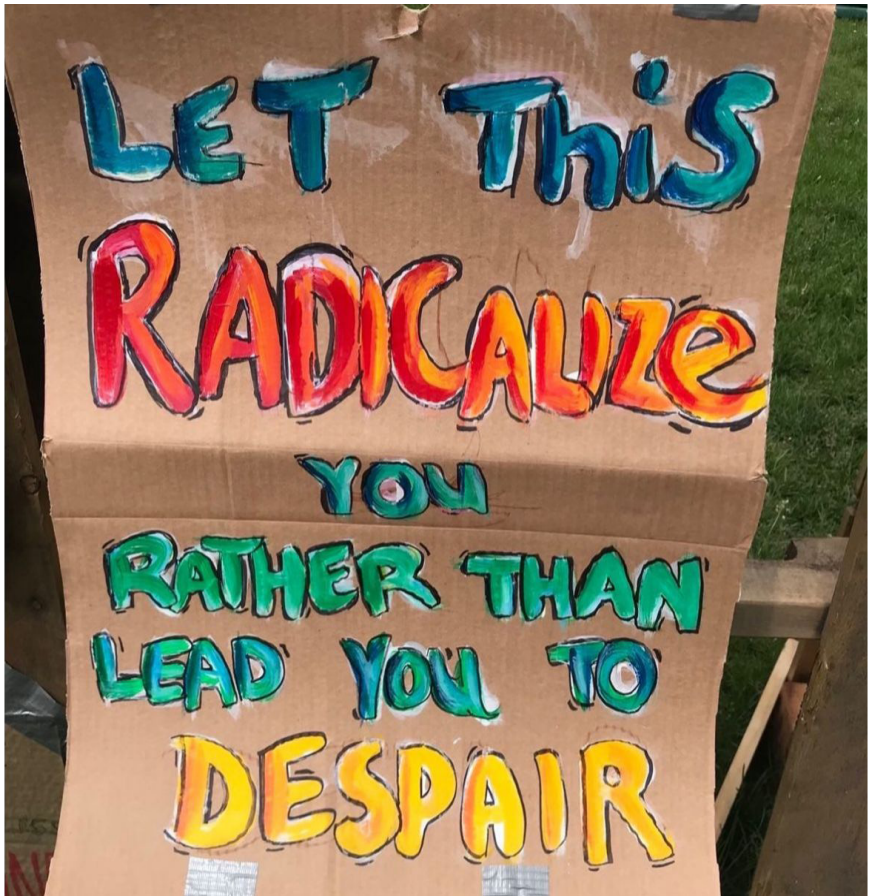 LET ThiS
RADICALIZe
YOU
RATHER THAN
LEAD YOU TO
DESPAIR